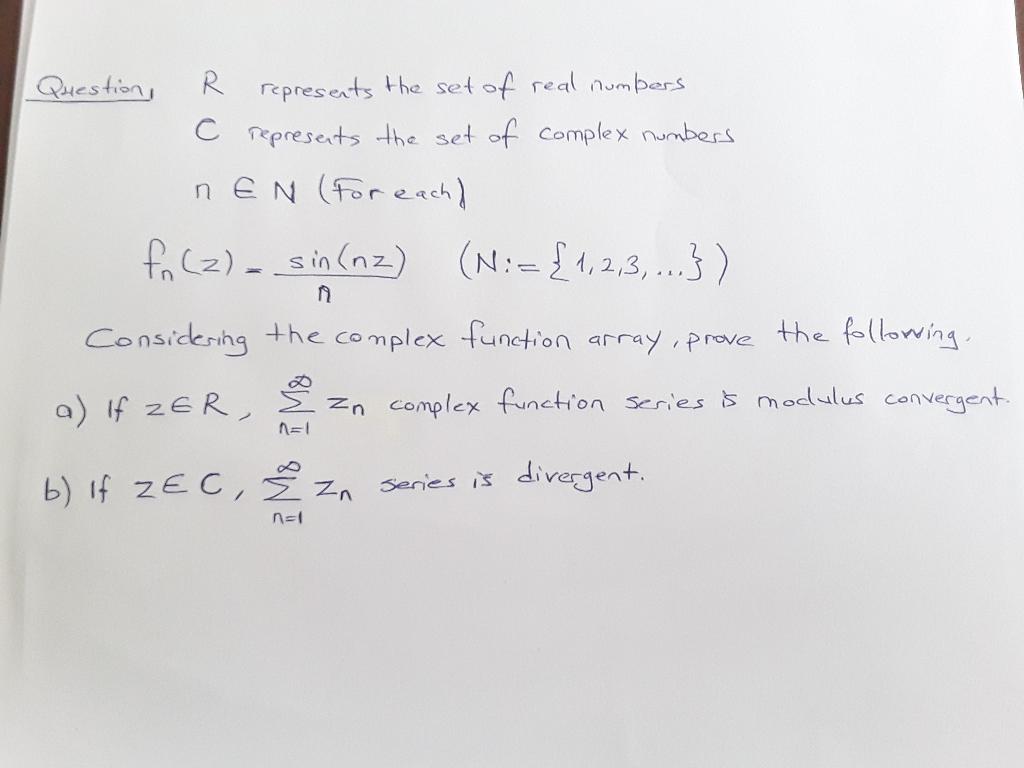 Question, R represents the set of real numbers
C represents the set of complex numbers
n ∈ N (For each)
fn(z) = sin(nz) / n (N:= {1,2,3,...})
Considering the complex function array, prove the following.
a) If z∈R, ∞ Σ n=1 zn complex function series is modulus convergent.
b) If z∈C, ∞ Σ n=1 zn series is divergent.